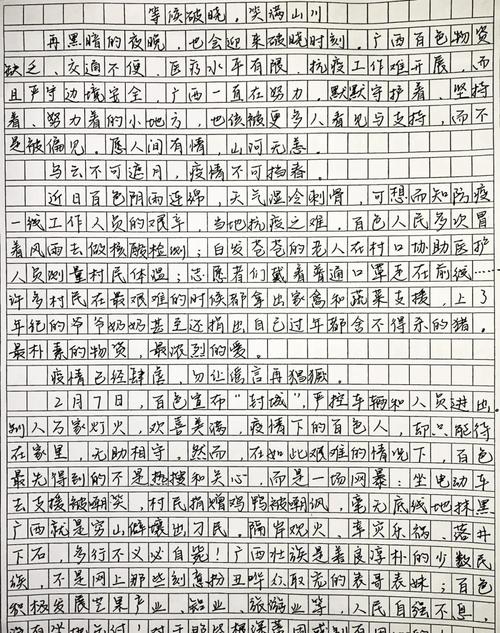 等候破晓,笑满山川
再黑暗的夜晚,也会迎来破晓时刻。广西百色物资
缺乏、交通不便、医疗水平有限,抗疫工作难开展,而
且严守边境安全,广西一直在努力,默默守护着、坚持
着、努力着的小地方,也该被更多人看见与支持,而不
是被偏见。愿人间有情,山河无恙。
乌云不可遮月,疫情不可挡春。
近日百色阴雨连绵,天气湿冷刺骨,可想而知防疫
一线工作人员的艰辛,当地抗疫之难,百色人民多次冒
着风雨去做核酸检测;白发苍苍的老人在村口协助医护
人员测量村民体温;志愿者们戴着普通口罩走在前线……
许多村民在最艰难的时候都拿出家禽和蔬菜支援,上了
年纪的爷爷奶奶甚至还捐出自己过年都舍不得杀的猪。
最朴素的物资,最浓烈的爱。
疫情已经肆虐,勿让谣言再猖獗。
2月7日,百色宣布“封城”,严控车辆和人员进出。
别人万家灯火,欢喜美满,疫情下的百色人,却只能待
在家里,无助相守。然而,在如此艰难的情况下,百色
最先得到的不是热搜和关心,而是一场网暴:坐电动车
去支援被嘲笑,村民捐赠鸡鸭被嘲讽,毫无底线地抹黑
广西就是穷山僻壤出刁民。隔岸观火、幸灾乐祸、落井
下石,多行不义必自毙!广西壮族是善良淳朴的少数民
族,不是网上那些刻意扮丑哗众取宠的表哥表妹;百色
积极发展芒果产业、铝业、旅游业等,人民自强不息,